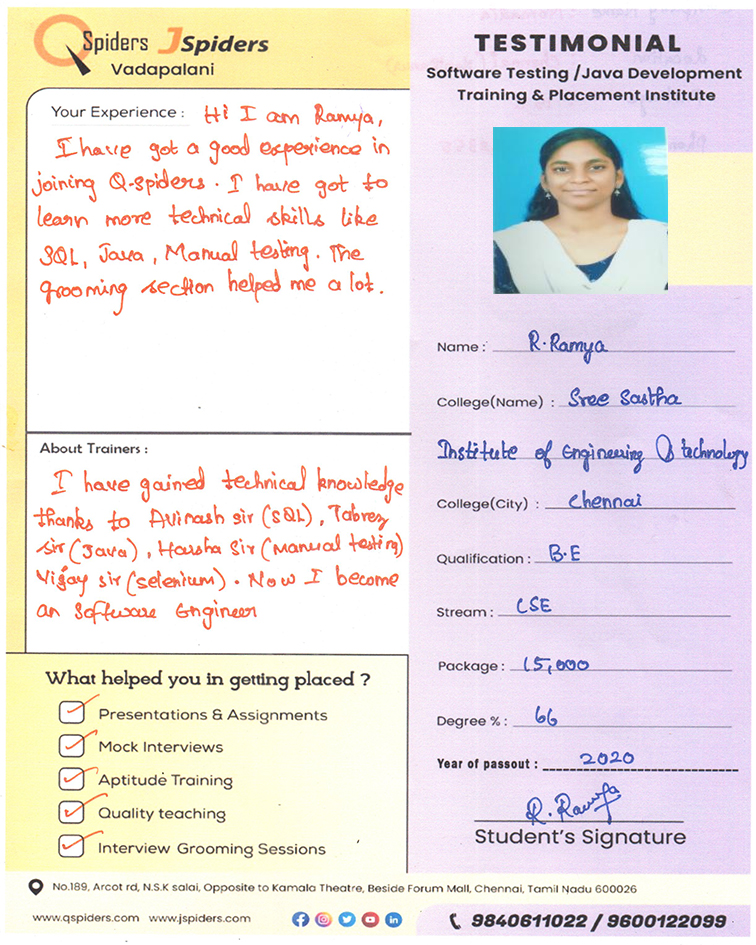 QSpiders JSpiders
Vadapalani
Your Experience : Hi I am Ramya,
I have got a good experience in
joining Q-spiders. I have got to
learn more technical skills like
SQL, Java, Manual testing. The
grooming section helped me a lot.
About Trainers :
I have gained technical knowledge
thanks to Avinash sir (SQL), Tabrez
sir (Java), Harsha Sir (Manual testing)
Vijay sir (selenium). Now I become
an Software Engineer
What helped you in getting placed ?
Presentations & Assignments
Mock Interviews
Aptitude Training
Quality teaching
Interview Grooming Sessions
TESTIMONIAL
Software Testing /Java Development
Training & Placement Institute
Name : R.Ramya
College(Name) : Sree Sastha
Institute of Engineering & technology
College(City) : Chennai
Qualification : B.E
Stream : CSE
Package : 15,000
Degree % : 66
Year of passout : 2020
R. Ramya
Student's Signature
No.189, Arcot rd, N.S.K salai, Opposite to Kamala Theatre, Beside Forum Mall, Chennai, Tamil Nadu 600026
www.qspiders.com www.jspiders.com
9840611022 / 9600122099